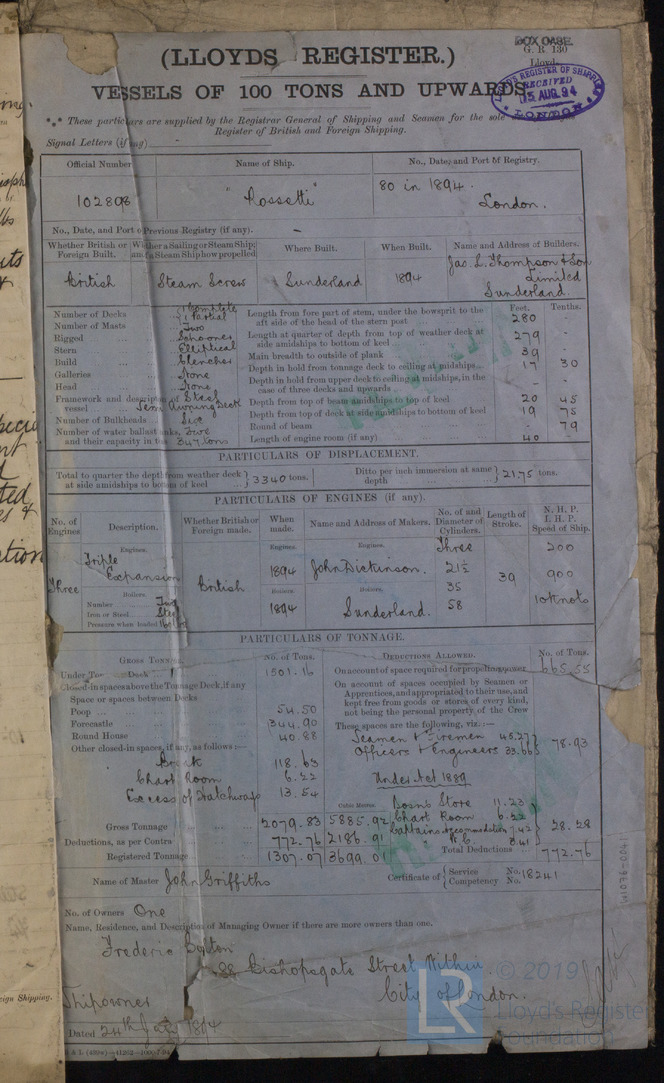 BOX CASE
G. R. 130
Lloyds
(LLOYDS REGISTER.)
VESSELS OF 100 TONS AND UPWARDS.
LLOYD'S REGISTER OF SHIPPING
RECEIVED
15 AUG. 94
LONDON
*** These particulars are supplied by the Registrar General of Shipping and Seamen for the sole
Register of British and Foreign Shipping.
Signal Letters (if any)
Official Number Name of Ship. No., Date, and Port of Registry.
102898 "Rossetti" 80 in 1894. London.
No., Date, and Port of Previous Registry (if any). –
Whether British or Foreign Built. Whether a Sailing or Steam Ship; and if a Steam Ship how propelled Where Built. When Built. Name and Address of Builders.
British Steam Screw Sunderland 1894 Jas. L. Thompson & Son Limited Sunderland.
Feet. Tenths.
Number of Decks 1 Complete & 1 Partial
Number of Masts Two
Rigged Schooner
Stern Elliptical
Build Clencher
Galleries None
Head None
Framework and description of vessel Steel Semi Awning Deck
Number of Bulkheads Six
Number of water ballast tanks, and their capacity in tons Five 347 tons
Length from fore part of stem, under the bowsprit to the aft side of the head of the stern post 280 -
Length at quarter of depth from top of weather deck at side amidships to bottom of keel 279 -
Main breadth to outside of plank 39 -
Depth in hold from tonnage deck to ceiling at midships 17 30
Depth in hold from upper deck to ceiling at midships, in the case of three decks and upwards - -
Depth from top of beam amidships to top of keel 20 45
Depth from top of deck at side amidships to bottom of keel 19 78
Round of beam - 79
Length of engine room (if any) 40 -
PARTICULARS OF DISPLACEMENT.
Total to quarter the depth from weather deck at side amidships to bottom of keel 3340 tons. Ditto per inch immersion at same depth 21.75 tons.
PARTICULARS OF ENGINES (if any).
No. of Engines Description. Whether British or Foreign made. When made. Name and Address of Makers. No. of and Diameter of Cylinders. Length of Stroke. N. H. P. I. H. P. Speed of Ship.
Three
Engines. Triple Expansion
Boilers.
Number Two
Iron or Steel Steel
Pressure when loaded 160 lbs
British
Engines. 1894
Boilers 1894
Engines. John Dickinson.
Boilers. Sunderland.
Three
21½
35
58
39
200
900
10 Knots
PARTICULARS OF TONNAGE.
GROSS TONNAGE. No. of Tons.
Under Tonnage Deck 1501.16
Closed-in spaces above the Tonnage Deck, if any
Space or spaces between Decks
Poop 54.50
Forecastle 344.90
Round House 40.88
Other closed-in spaces, if any, as follows:—
Break 118.63
Chart Room 6.22
Excess of Hatchways 13.54
Cubic Metres.
Gross Tonnage 2079.83 5885.92
Deductions, as per Contra 772.76 2186.91
Registered Tonnage 1307.07 3699.01
DEDUCTIONS ALLOWED. No. of Tons.
On account of space required for propelling power 665.55
On account of spaces occupied by Seamen or
Apprentices, and appropriated to their use, and
kept free from goods or stores of every kind,
not being the personal property of the Crew
These spaces are the following, viz.:—
Seamen & Firemen 45.27
Officers & Engineers 33.66
78.93
Under Act 1889
Bosns Store 11.23
Chart Room 6.22
Captains accommodation 7.42
W.C. 3.41
28.28
Total Deductions 772.76
Name of Master John Griffiths Certificate of Service No. Competency No. 18241
No. of Owners One
Name, Residence, and Description of Managing Owner if there are more owners than one.
Frederic Bolton
Bishopsgate Street Within
City of London.
Shipowner
Dated 24th July 1894
W1076-0041
LR
© 2019
Lloyd's Register
Foundation
eign Shipping.